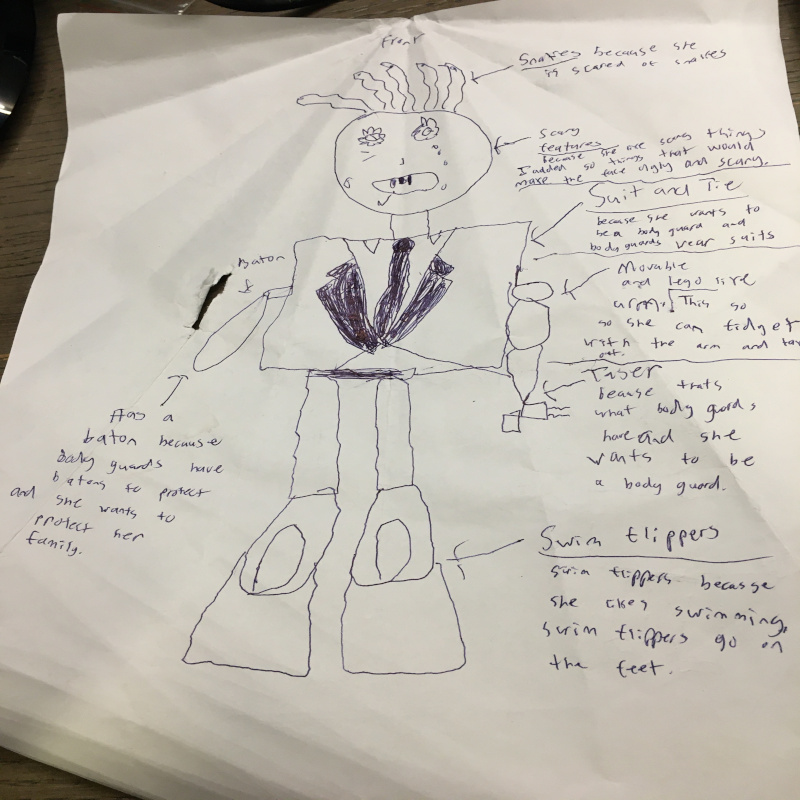 Front
Snakes because she
is scared of snakes
Scary
features
because she like scary things
I added so things that would
make the face ugly and scary.
Suit and Tie
because she wants to
be a body guard and
body guards wear suits
Baton
Movable
and lego like
This so
so she can fidget
with the arm and
out.
Taser
because thats
what body guards
have and she
wants to be
a body guard.
Has a
baton because
Body guards have
batons to protect
and she wants to
protect her
family.
Swim flippers
swim flippers because
she likes swimming.
swim flippers go on
the feet.